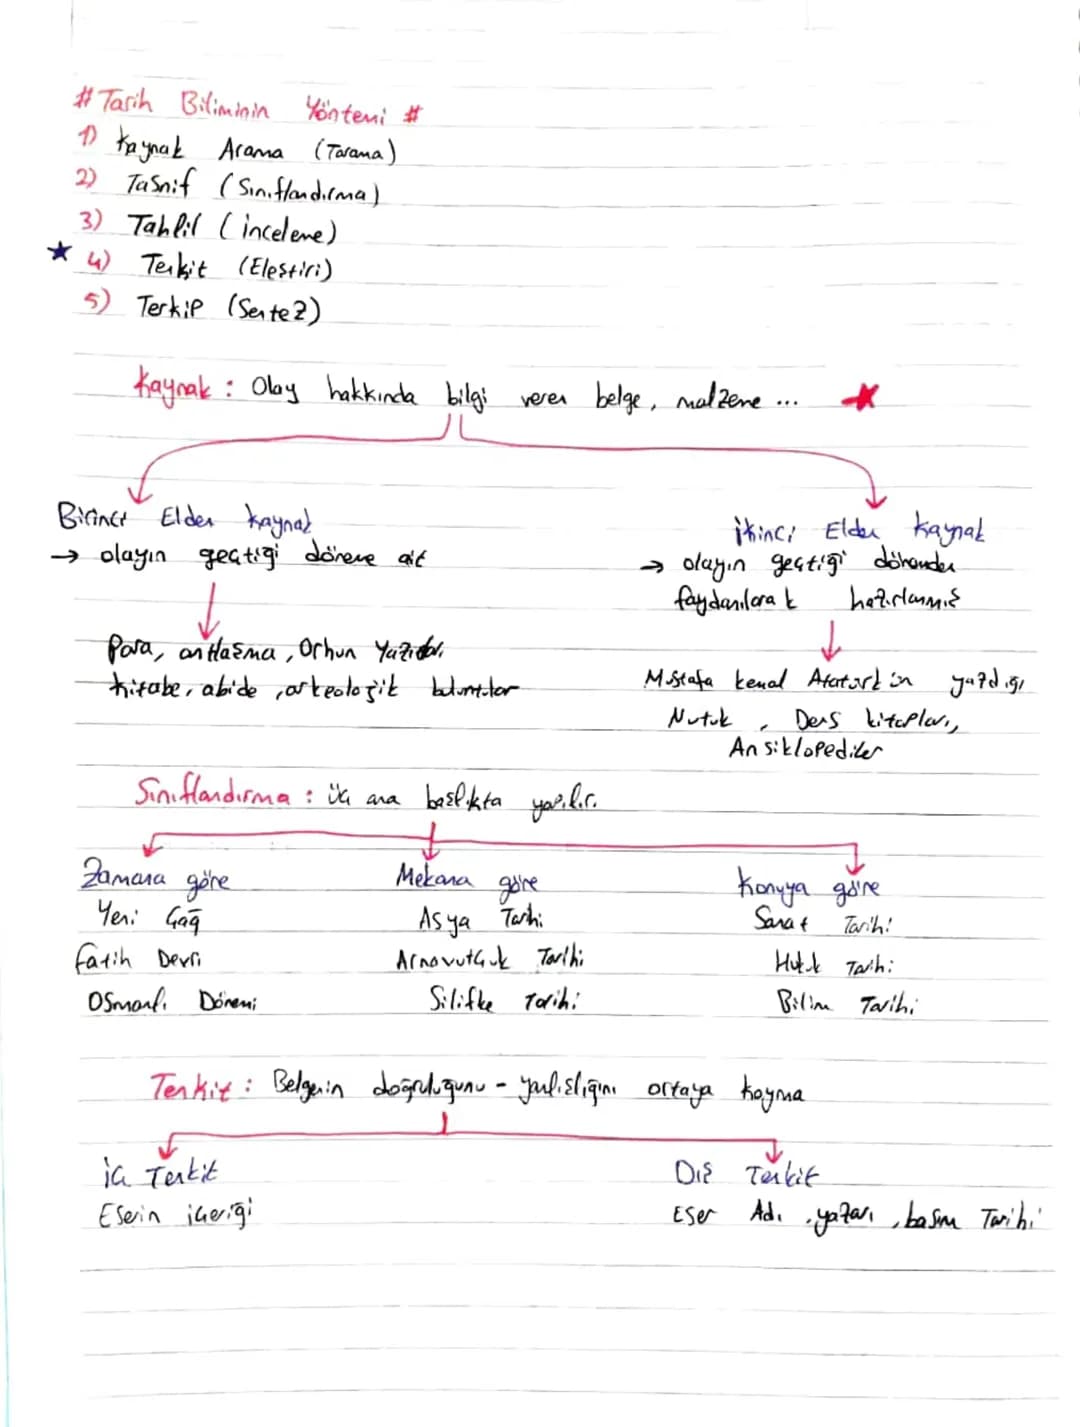 # Tarih Biliminin Yöntemi #
1) Kaynak Arama (Tarama)
2) Tasnif (Sınıflandırma)
3) Tahlil (inceleme)
★ 4) Tenkit (Eleştiri)
5) Terkip (Sentez)
Kaynak : Olay hakkında bilgi veren belge, malzeme ...
Birinci Elden kaynak
→ olayın geçtiği döneme ait
Para, antlaşma, Orhun Yazıtları
kitabe, abide, arkeolojik buluntular
İkinci Elden Kaynak
→ olayın geçtiği dönemden
faydanılarak hazırlanmış
Mustafa kemal Atatürk'ün yazdığı
Nutuk, Ders kitapları,
Ansiklopediler
Sınıflandırma : üç ana başlıkta yapılır.
Zamana göre
Yeni Çağ
Fatih Devri
Osmanlı Dönemi
Mekana göre
Asya Tarihi
Arnavutluk Tarihi
Silifke Tarihi
Konuya göre
Sanat Tarihi
Hukuk Tarihi
Bilim Tarihi
Tenkit : Belgenin doğruluğunu - yanlışlığını ortaya koyma
İç Tenkit
Eserin içeriği
Dış Tenkit
Eser Adı, yazarı, basım Tarihi